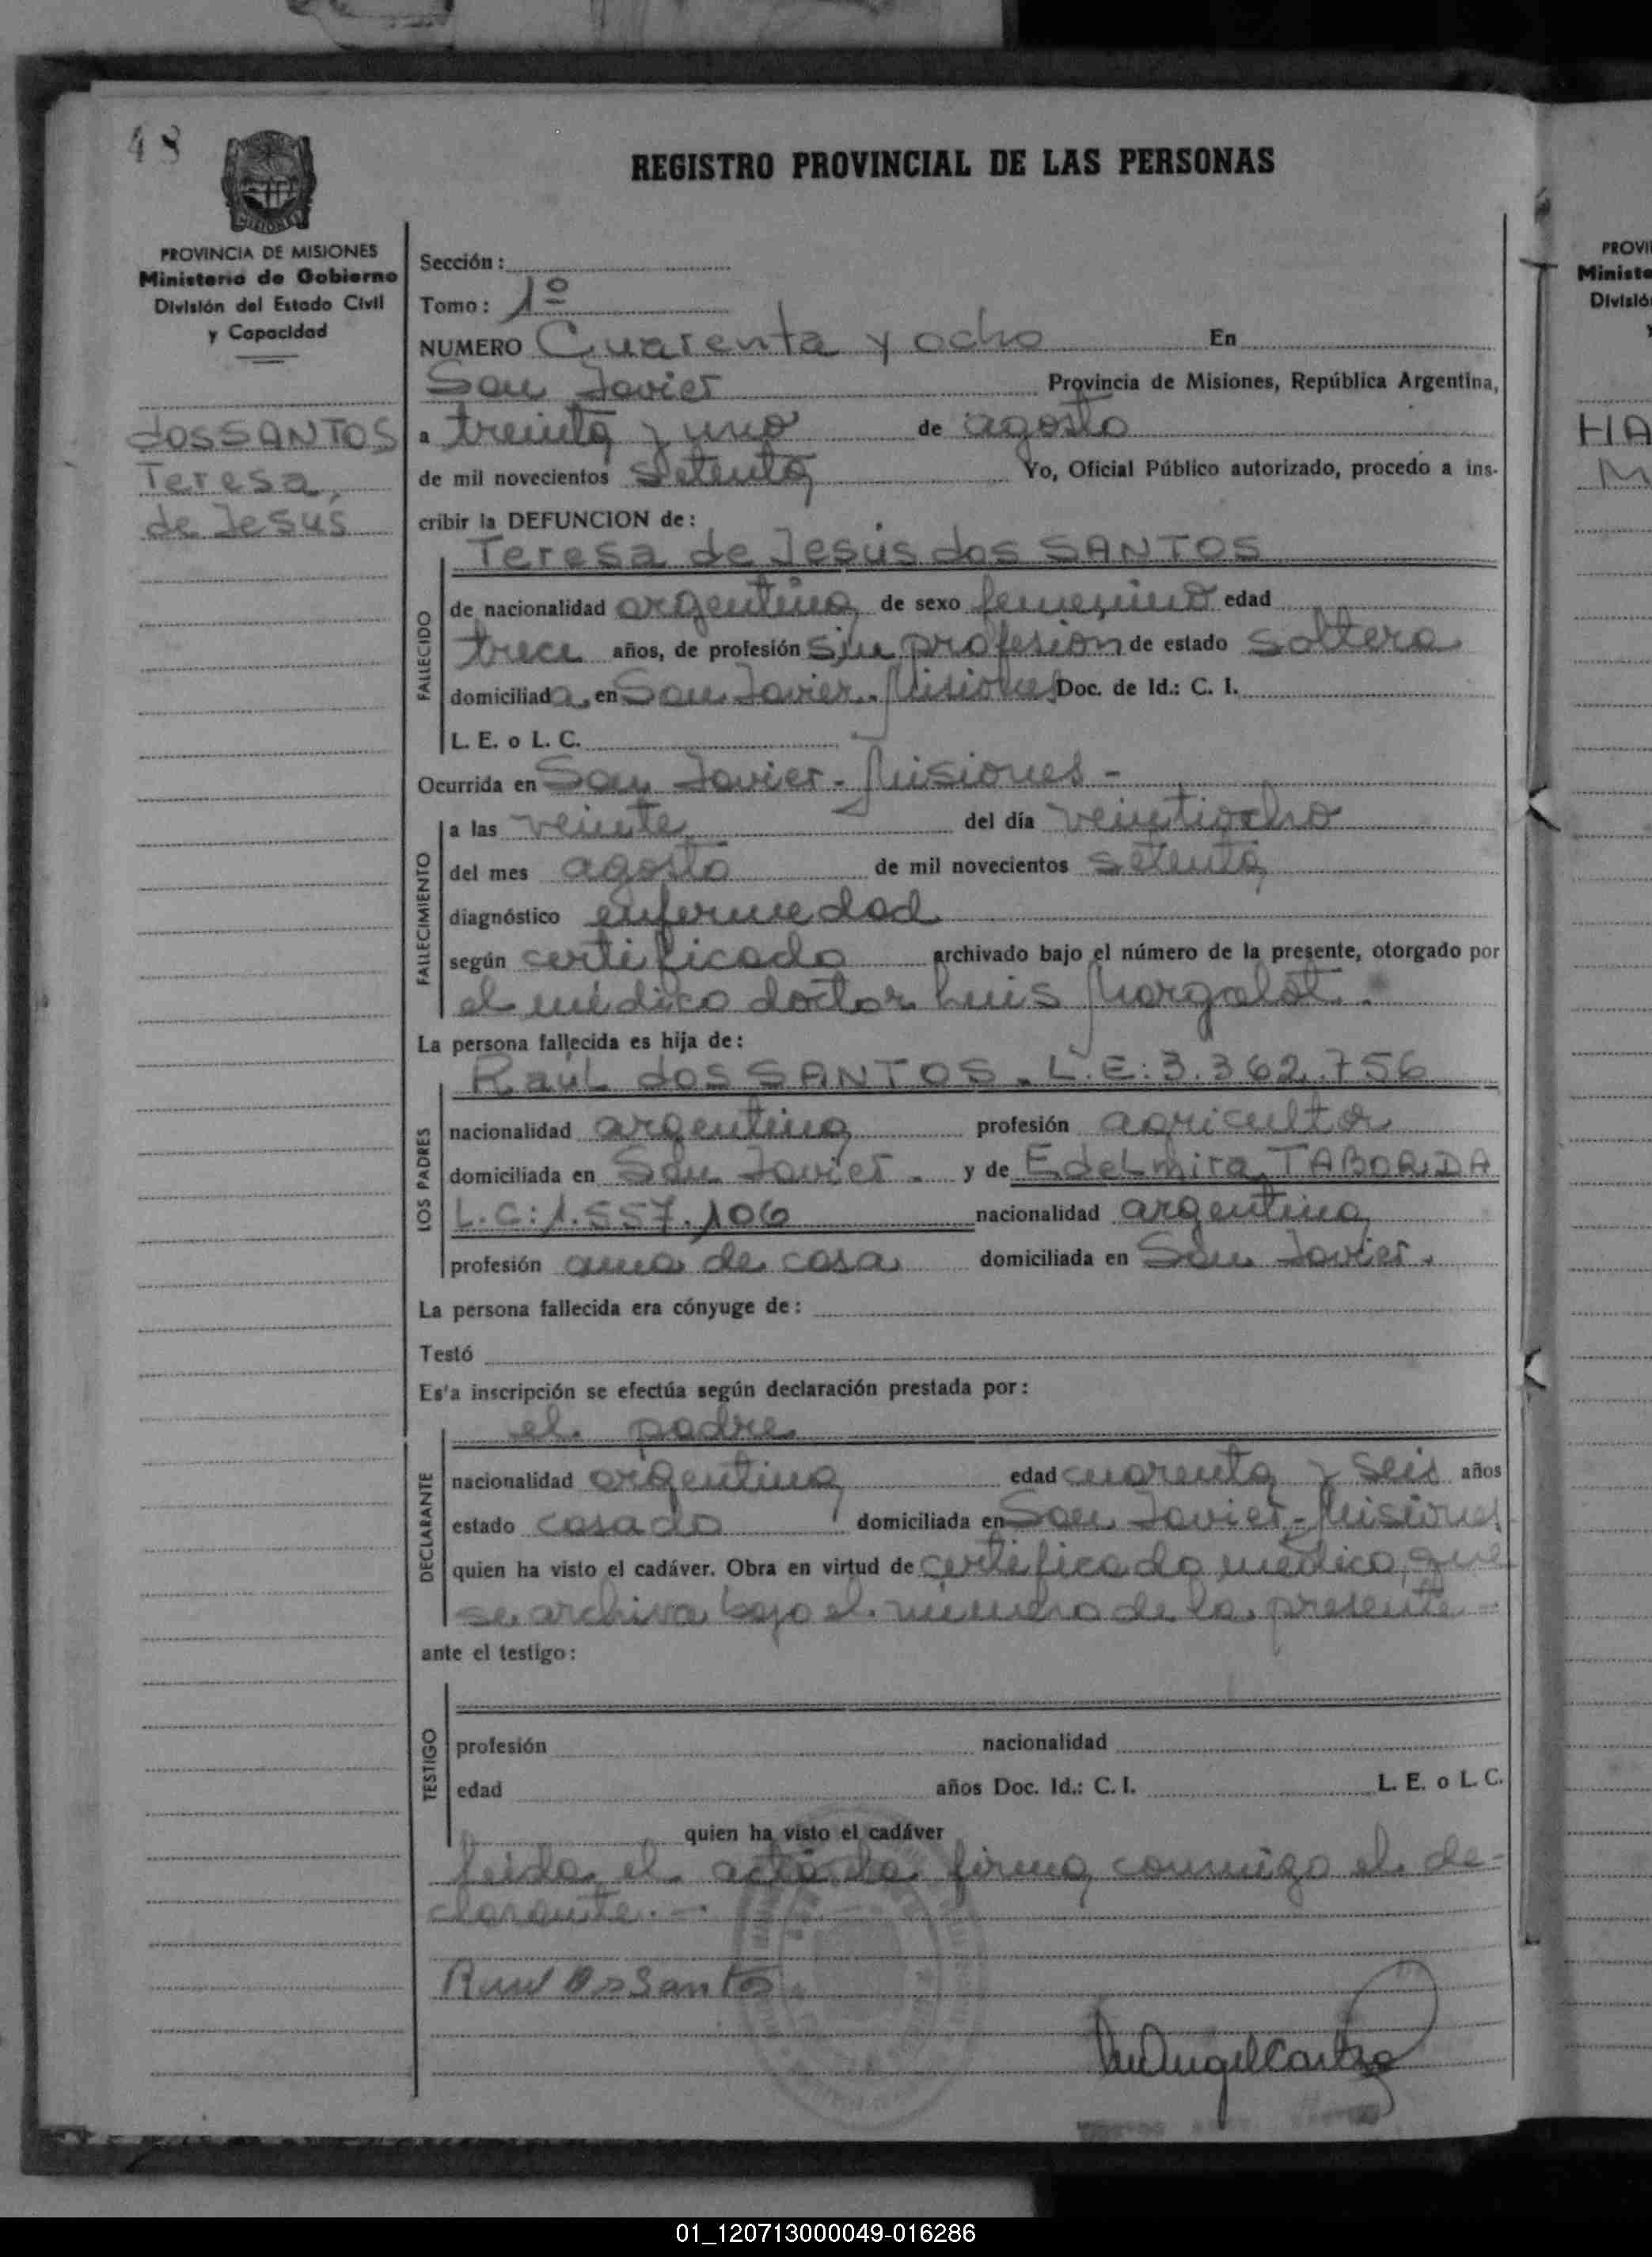 48
REGISTRO PROVINCIAL DE LAS PERSONAS
PROVINCIA DE MISIONES
Ministerio de Gobierno
División del Estado Civil
y Capacidad
dos SANTOS
Teresa
de Jesús
Sección:
Tomo: 1º
NUMERO Cuarenta y ocho En
San Javier Provincia de Misiones, República Argentina,
a treinta y uno de agosto
de mil novecientos setenta Yo, Oficial Público autorizado, procedo a ins-
cribir la DEFUNCION de:
Teresa de Jesús dos SANTOS
FALLECIDO
de nacionalidad argentina de sexo femenino edad
trece años, de profesión sin profesión de estado soltera
domiciliada, en San Javier. Misiones Doc. de Id.: C. I.
L. E. o L. C.
Ocurrida en San Javier - Misiones -
FALLECIMIENTO
a las veinte del día veintiocho
del mes agosto de mil novecientos setenta
diagnóstico enfermedad
según certificado archivado bajo el número de la presente, otorgado por
el médico doctor Luis Margalot.
La persona fallecida es hija de:
Raúl dos SANTOS. L.E: 3.362.756
LOS PADRES
nacionalidad argentina profesión agricultor
domiciliada en San Javier. y de Edelmira TABORDA
L.C: 1.557.106 nacionalidad argentina
profesión ama de casa domiciliada en San Javier.
La persona fallecida era cónyuge de:
Testó
Es'a inscripción se efectúa según declaración prestada por:
el padre
DECLARANTE
nacionalidad argentina edad cuarenta y seis años
estado casado domiciliada en San Javier - Misiones
quien ha visto el cadáver. Obra en virtud de certificado médico, que
se archiva bajo el número de la presente -
ante el testigo:
TESTIGO
profesión nacionalidad
edad años Doc. Id.: C. I. L. E. o L. C.
quien ha visto el cadáver
Leida el acta la firma conmigo el de-
clarante. -
Raul Dos Santos
PROVI
Ministe
Divisió
HA
M
01_120713000049-016286